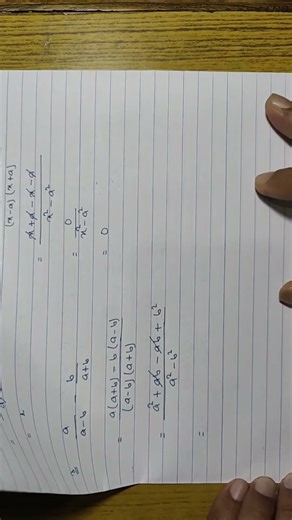 (x-a) (x+a)
= x+a-x-a / x²-a²
= 0 / x²-a²
= 0
3) a / a-b - b / a+b
= a(a+b) - b(a-b) / (a-b) (a+b)
= a² + ab - ab + b² / a² - b²
=